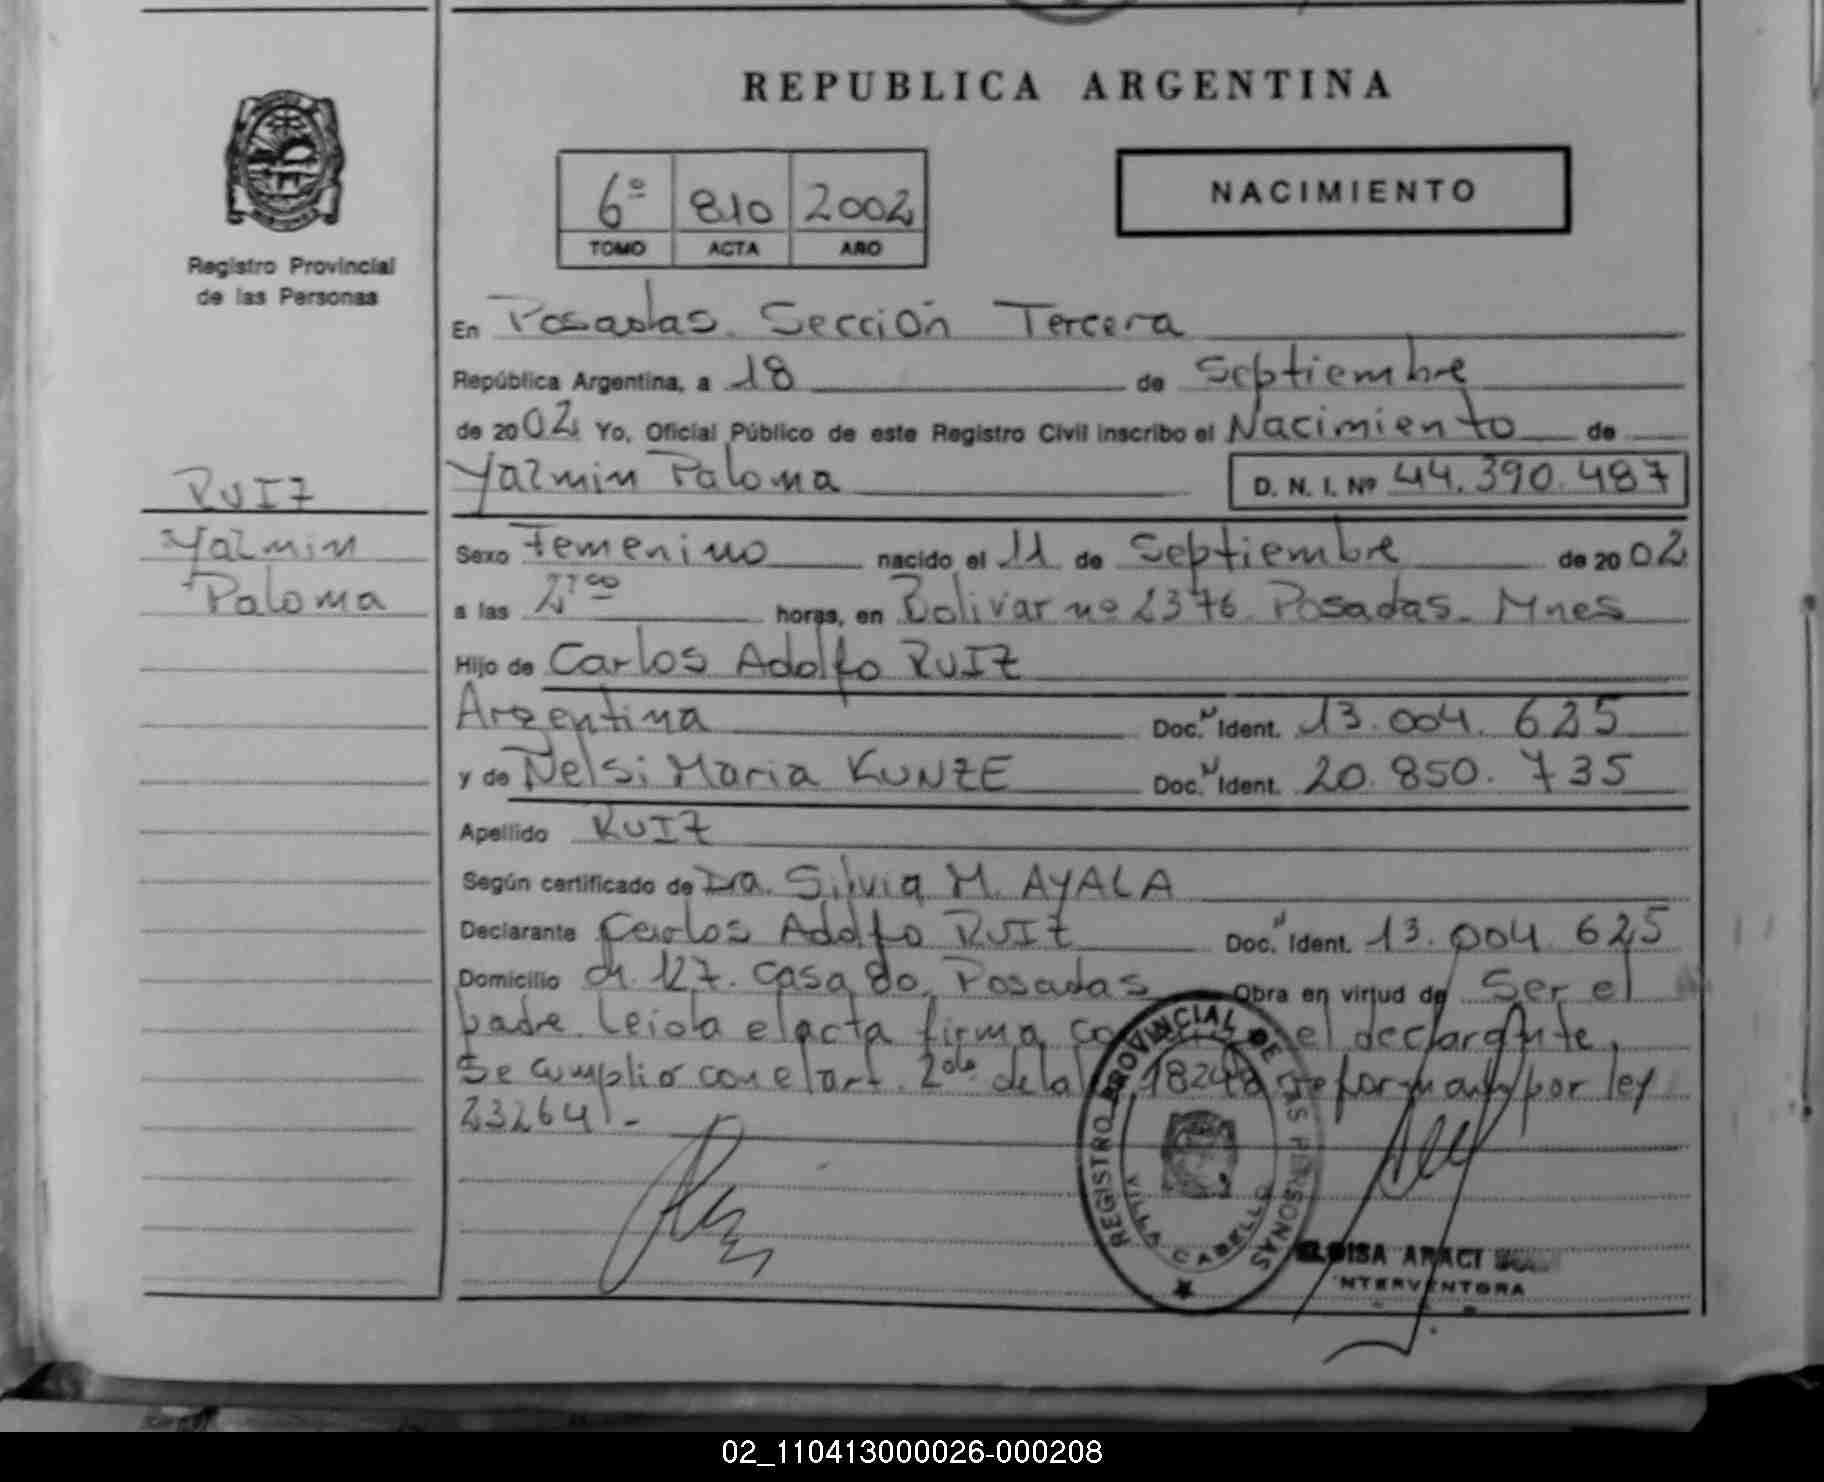 REPUBLICA ARGENTINA
NACIMIENTO
6º 810 2002
TOMO ACTA AÑO
Registro Provincial
de las Personas
En Posadas. Sección Tercera
República Argentina, a 18 de Septiembre
de 2002 Yo, Oficial Público de este Registro Civil inscribo el Nacimiento de
Yazmin Paloma D. N. I. Nº 44.390.487
RUIZ
Yazmin
Paloma
Sexo Femenino nacido el 11 de Septiembre de 2002
a las horas, en Bolivar nº 2376. Posadas. Mnes
Hijo de Carlos Adolfo RUIZ
Argentina Doc. Ident. 13.004.625
y de Nelsi Maria KUNZE Doc. Ident. 20.850.735
Apellido RUIZ
Según certificado de Dra. Silvia M. AYALA
Declarante Carlos Adolfo RUIZ Doc. Ident. 13.004.625
Domicilio ch. 127. casa 80. Posadas Obra en virtud de Ser el
padre. Leida el acta firma el declarante,
Se cumplio con el art. 2do de la 18248 reformado por ley
23264.-
REGISTRO PROVINCIAL DE LAS PERSONAS
VILLA CABELLO
ELOISA ARACI
INTERVENTORA
02_110413000026-000208